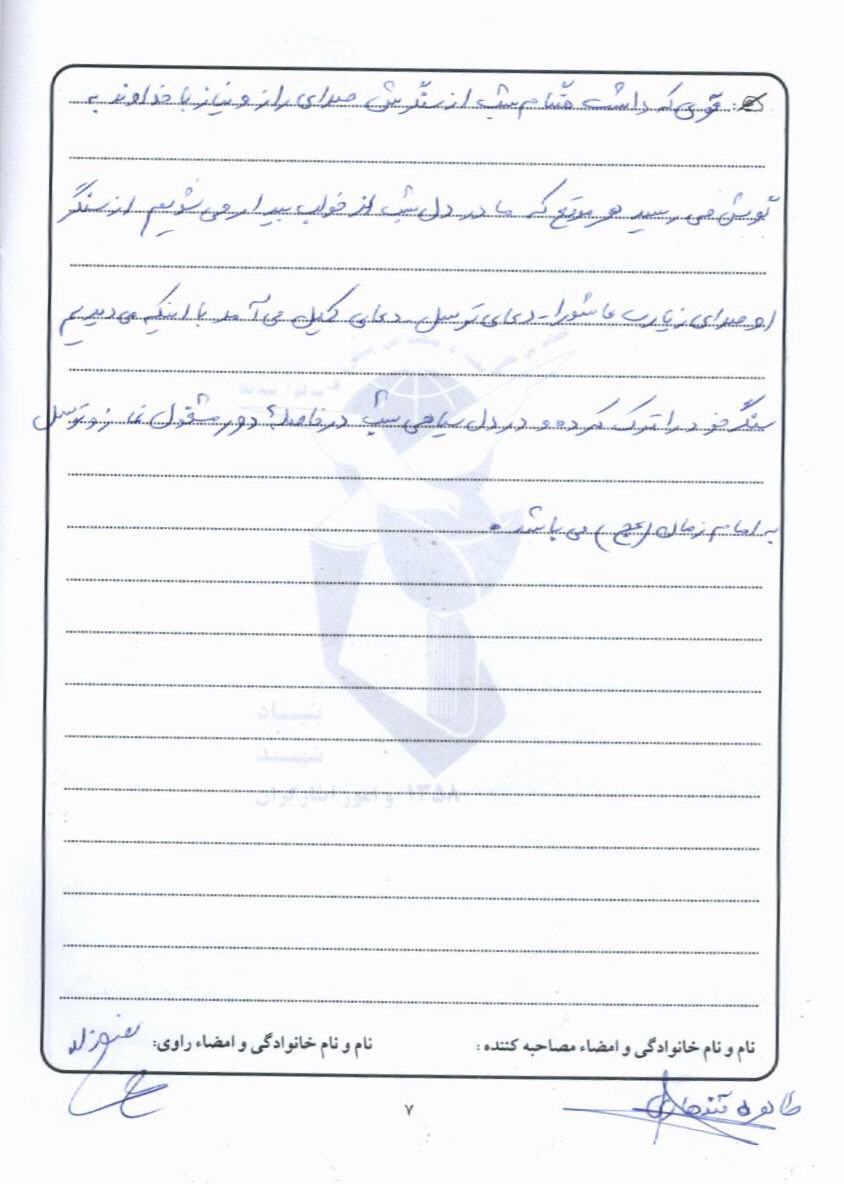 قوی که داشت هنگام شب از سنگرش صدای راز و نیاز با خداوند به
گوش می رسید هر موقع که ما در دل شب از خواب بیدار می شویم از سنگر
او صدای زیارت عاشورا - دعای توسل - دعای کمیل می آمد با اینکه می دیدیم
سنگر خود را ترک کرده و در دل سیاهی شب در فاصلهٔ دور مشغول نماز و توسل
به امام زمان (عج) می باشد.
بنیاد
شهید
و امور ایثارگران
۱۳۵۸
نام و نام خانوادگی و امضاء مصاحبه کننده :
نام و نام خانوادگی و امضاء راوی:
طاهره
۷